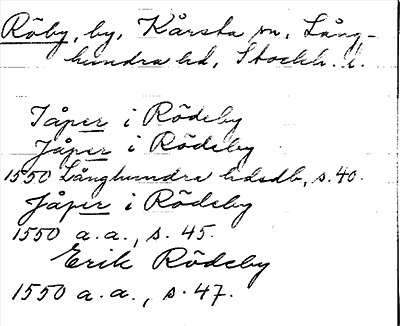 Röby, by, Kårsta sn, Lång-
hundra hd, Stockh. l.
Jåper i Rödeby
Jåper i Rödeby
1550 Långhundra hdsdb, s. 40.
Jåper i Rödeby
1550 a.a., s. 45.
Erik Rödeby
1550 a.a., s. 47.